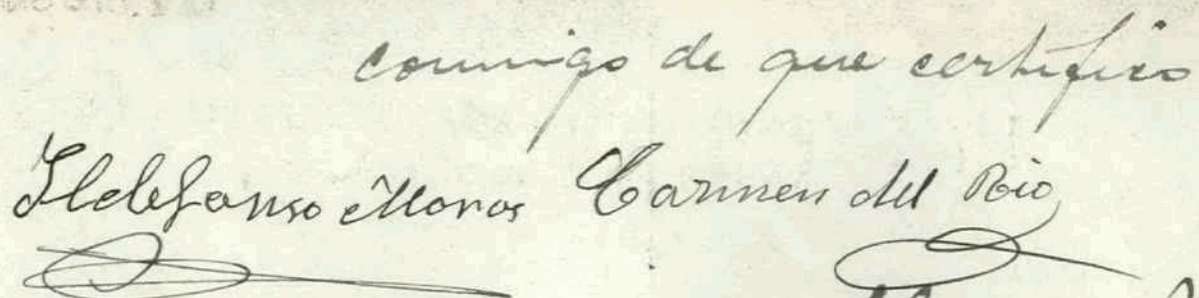 conmigo de que certifico
Ildefonso Moros Carmen del Rio